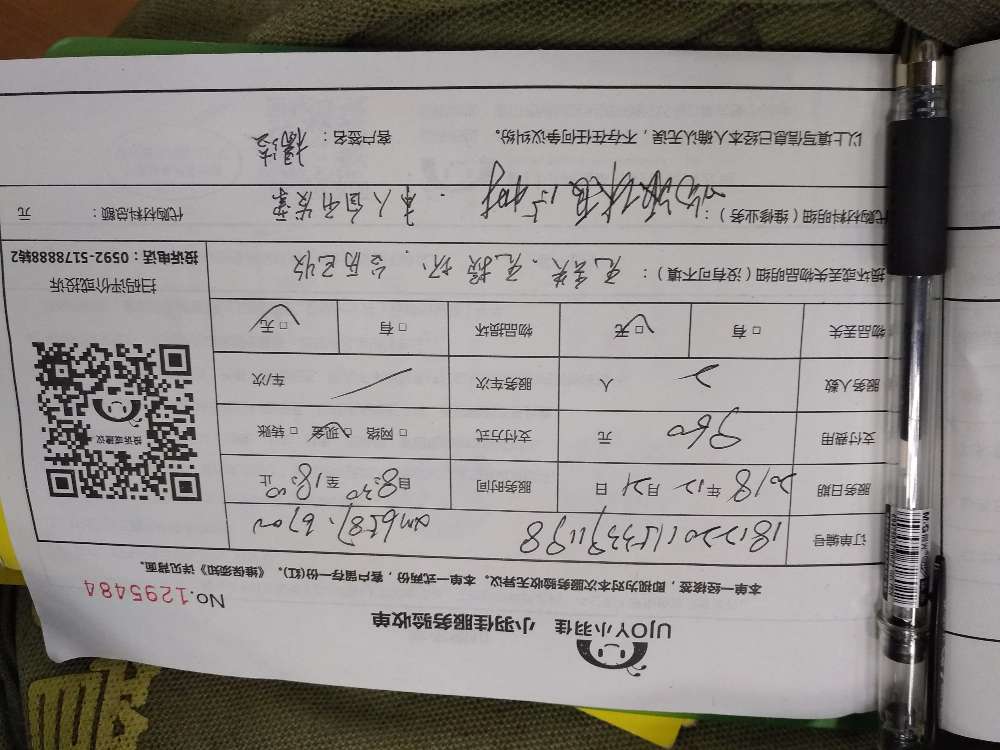 UJOY小羽佳 小羽佳服务验收单
No.1295484
本单一经接签，即视为对本次服务验收无异议。本单一式两份，客户留存一份(红)。《维保须知》详见背面。
订单编号
服务日期 2018 年 12 月 21 日 服务时间 自 8:30 至 18:00 止
支付费用 960 元 支付方式 □ 网络 □ 现金 □ 转账
投诉或建议
服务人数 2 人 服务车次 车/次
物品丢失 □ 有 □ 无 物品损坏 □ 有 □ 无
扫码评价或投诉
投诉电话：0592-5178888转2
损坏或丢失物品明细（没有可不填）： 无丢失.无损坏.
代购材料明细（维修业务）： 代购材料总额： 元
以上填写信息已经本人确认无误，不存在任何争议纠纷。 客户签名：